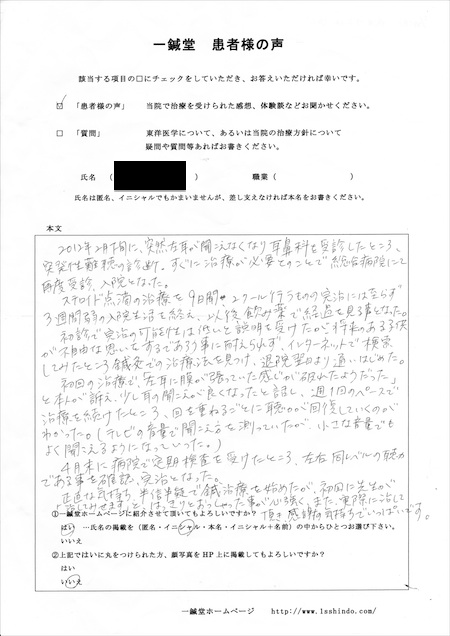 一鍼堂 患者様の声
該当する項目の□にチェックをしていただき、お答えいただければ幸いです。
☑ 「患者様の声」 当院で治療を受けられた感想、体験談などお聞かせください。
□ 「質問」 東洋医学について、あるいは当院の治療方針について
疑問や質問等あればお書きください。
氏名 （ ） 職業（ ）
氏名は匿名、イニシャルでもかまいませんが、差し支えなければ本名をお書きください。
本文
2012年2月下旬に、突然左耳が聞えなくなり耳鼻科を受診したところ、
突発性難聴の診断。すぐに治療が必要とのことで総合病院にて
再度受診、入院となった。
ステロイド点滴の治療を9日間、2クール行うものの完治には至らず
3週間弱の入院生活を終え、以後飲み薬で経過を見る事となった。
初診で完治の可能性は低いと説明を受けたが将来のある子供
が不自由な思いをするであろう事に耐えられず、インターネットで検索
してみたところ鍼灸での治療法を見つけ、退院翌日より通いはじめた。
初回の治療で、「左耳に膜が張っていた感じが破れたようだった」
と本人が訴え、少し耳の聞えが良くなったと話し、週1回のペースで
治療を続けたところ、回を重ねるごとに聴力が回復していくのが
わかった。（テレビの音量で聞こえ方を測っていたが、小さな音量でも
よく聞えるようになっていった。）
4月末に病院で定期検査を受けたところ、左右同レベルの聴力
である事を確認、完治となった。
正直な気持ち、半信半疑で鍼治療を始めたが、初回に先生が
「治してみせます」とはっきりとおっしゃった事が心強く、また実際に治して
頂き、感謝な気持ちでいっぱいです。
①一鍼堂ホームページに紹介させて頂いてもよろしいですか？
はい …氏名の掲載を（匿名・イニシャル・本名・イニシャル＋名前）の中からひとつお選び下さい。
いいえ
②上記ではいに丸をつけられた方、顔写真をHP上に掲載してもよろしいですか？
はい
いいえ
一鍼堂ホームページ http://www.1sshindo.com/